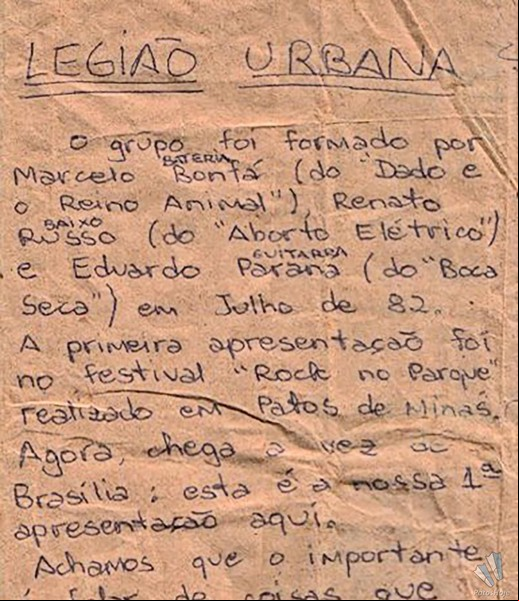 LEGIÃO URBANA
O grupo foi formado por
BATERIA
Marcelo Bonfá (do "Dado e
o Reino Animal"), Renato
BAIXO
Russo (do "Aborto Elétrico")
GUITARRA
e Eduardo Paraná (do "Boca
Seca") em Julho de 82.
A primeira apresentação foi
no festival "Rock no Parque"
realizado em Patos de Minas.
Agora, chega a vez de
Brasília; esta é a nossa 1ª
apresentação aqui.
Achamos que o importante
falar de coisas que